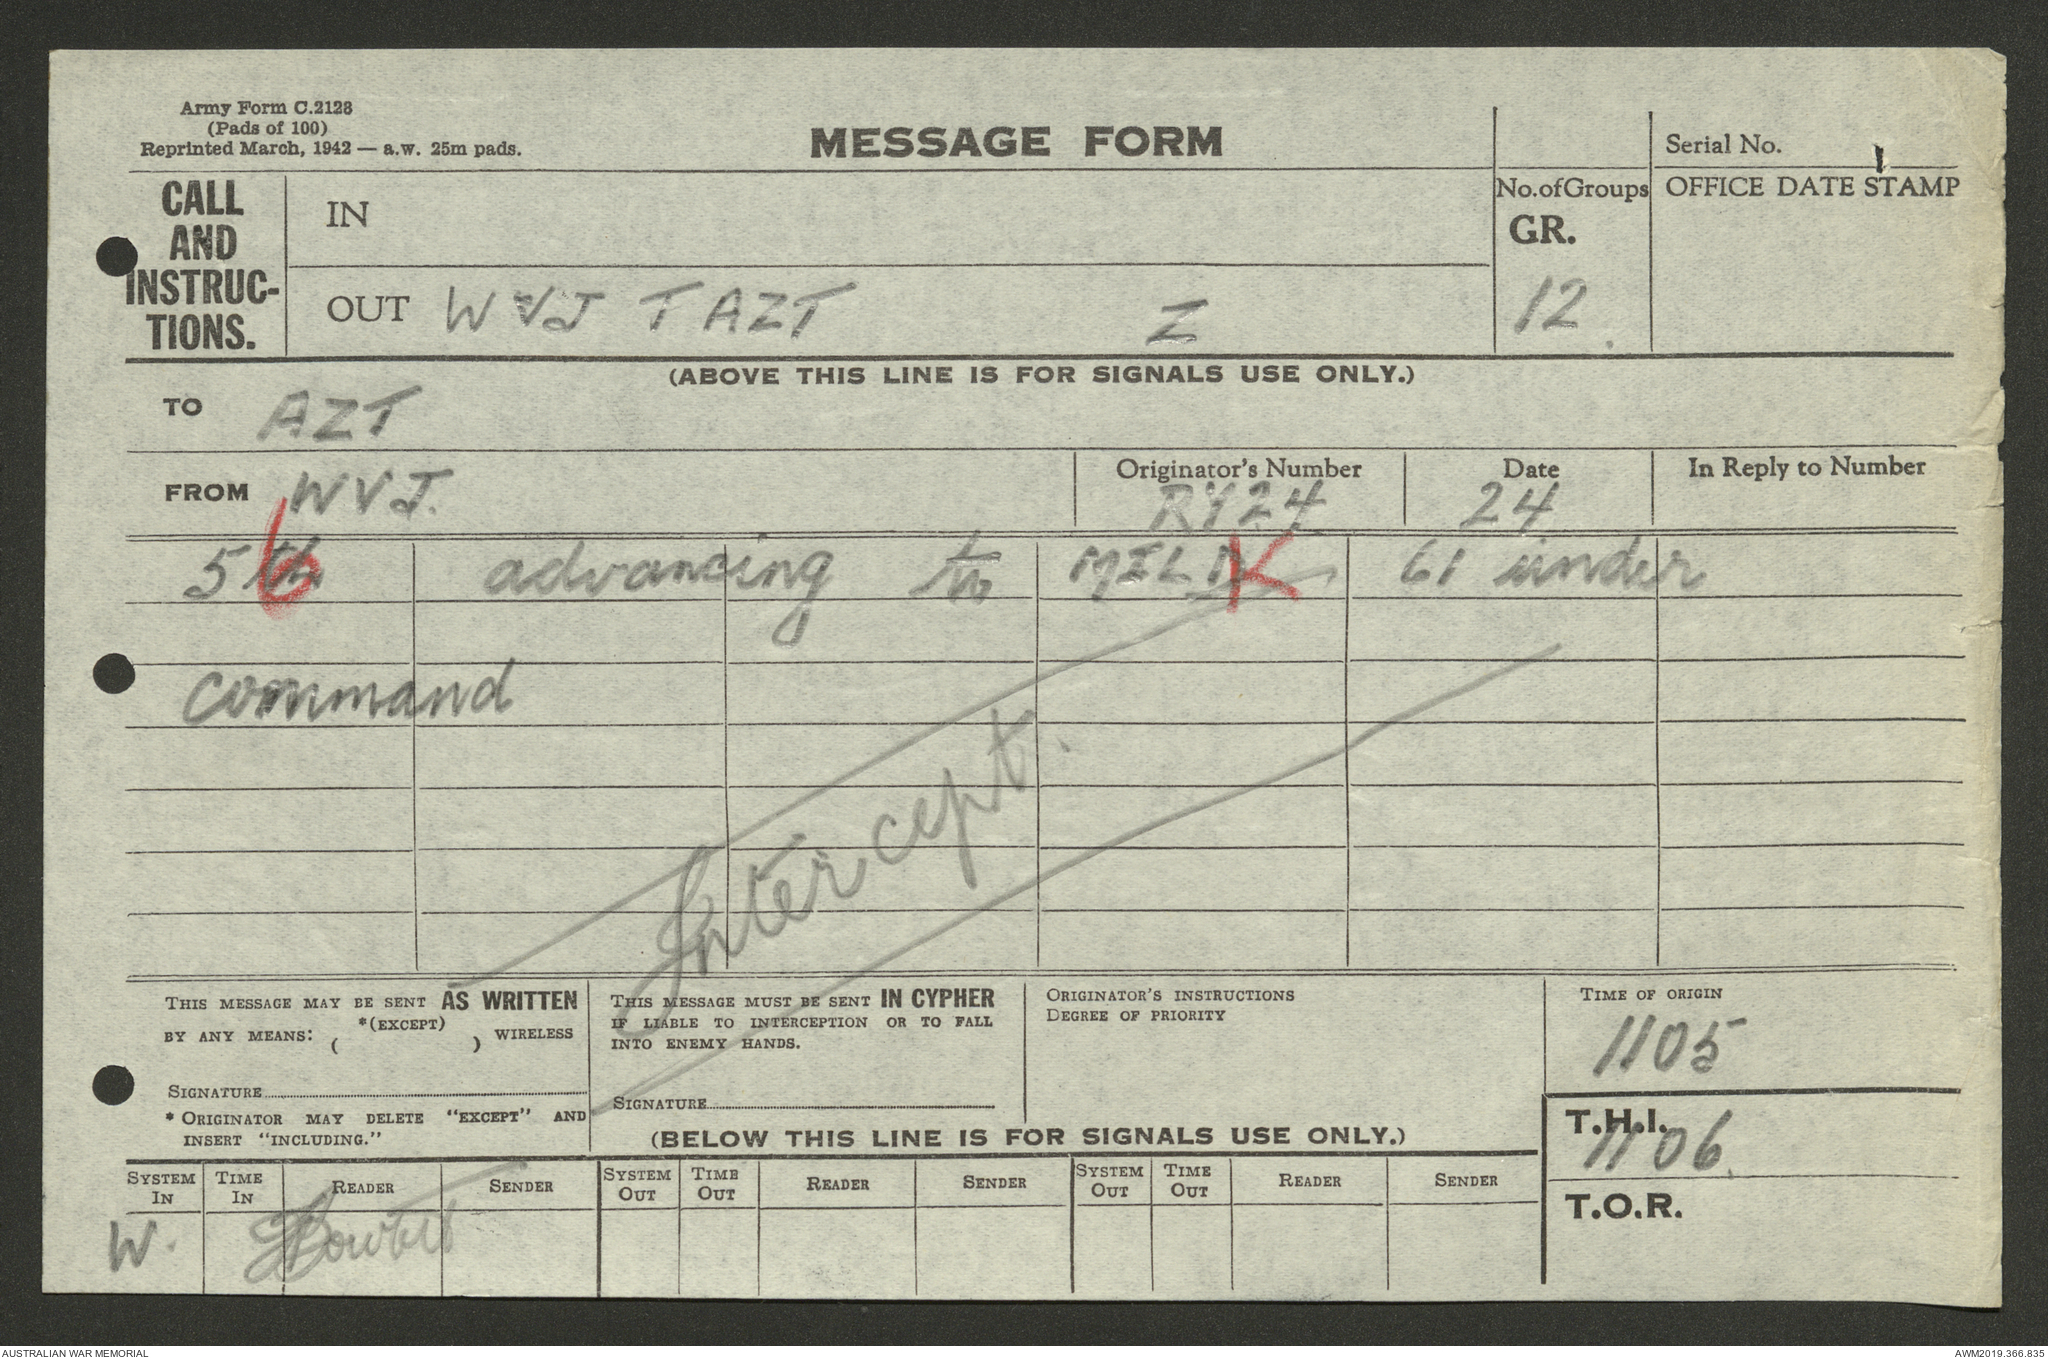 Army Form C.2128
(Pads of 100)
Reprinted March, 1942 — a.w. 25m pads.
MESSAGE FORM
Serial No. 1
CALL AND INSTRUC-TIONS.
IN
No.ofGroups GR.
OFFICE DATE STAMP
OUT WVJ T AZT Z 12
(ABOVE THIS LINE IS FOR SIGNALS USE ONLY.)
TO AZT
FROM WVJ.
Originator's Number RY24
Date 24
In Reply to Number
5th 6 advancing to MILN K 61 under
command
Intercept.
THIS MESSAGE MAY BE SENT AS WRITTEN
BY ANY MEANS: *(EXCEPT) ( ) WIRELESS
SIGNATURE
* ORIGINATOR MAY DELETE "EXCEPT" AND
INSERT "INCLUDING."
THIS MESSAGE MUST BE SENT IN CYPHER
IF LIABLE TO INTERCEPTION OR TO FALL
INTO ENEMY HANDS.
SIGNATURE
ORIGINATOR'S INSTRUCTIONS
DEGREE OF PRIORITY
TIME OF ORIGIN
1105
T.H.I.
1106
T.O.R.
(BELOW THIS LINE IS FOR SIGNALS USE ONLY.)
SYSTEM IN TIME IN READER SENDER SYSTEM OUT TIME OUT READER SENDER SYSTEM OUT TIME OUT READER SENDER
W.
AUSTRALIAN WAR MEMORIAL
AWM2019.366.835